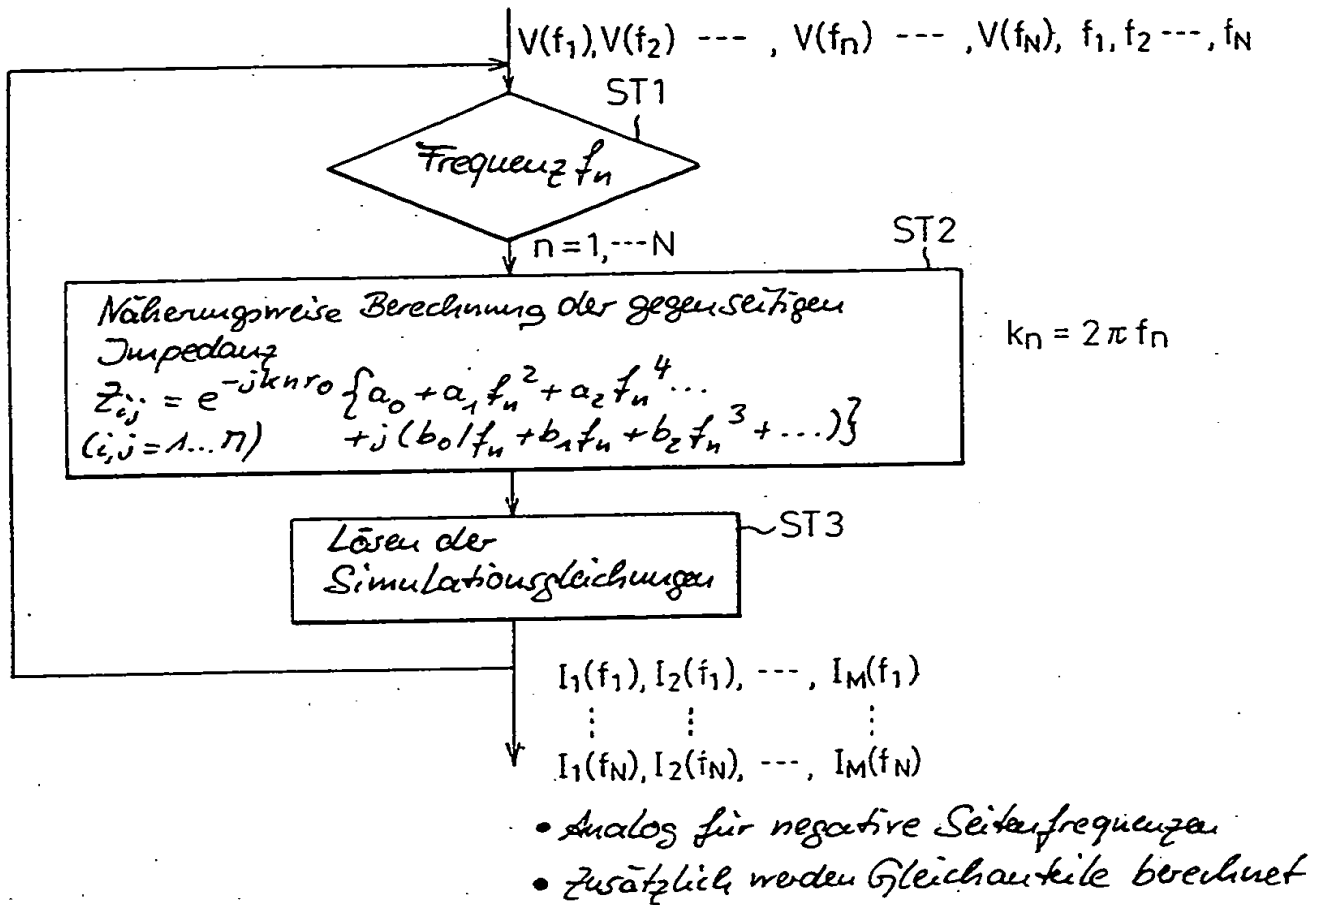 V(f₁), V(f₂) --- , V(fₙ) --- , V(f_N), f₁, f₂ ---, f_N
ST1
Frequenz fₙ
n = 1, --- N
ST2
Näherungsweise Berechnung der gegenseitigen
Impedanz
Z_ij = e^{-jknr₀} {a₀ + a₁ fₙ² + a₂ fₙ⁴ ...
(i,j = 1 ... n) + j (b₀/fₙ + b₁fₙ + b₂fₙ³ + ...)}
kₙ = 2 π fₙ
Lösen der
Simulationsgleichungen
ST3
I₁(f₁), I₂(f₁), ---, I_M(f₁)
I₁(f_N), I₂(f_N), ---, I_M(f_N)
• Analog für negative Seitenfrequenzen
• Zusätzlich werden Gleichanteile berechnet